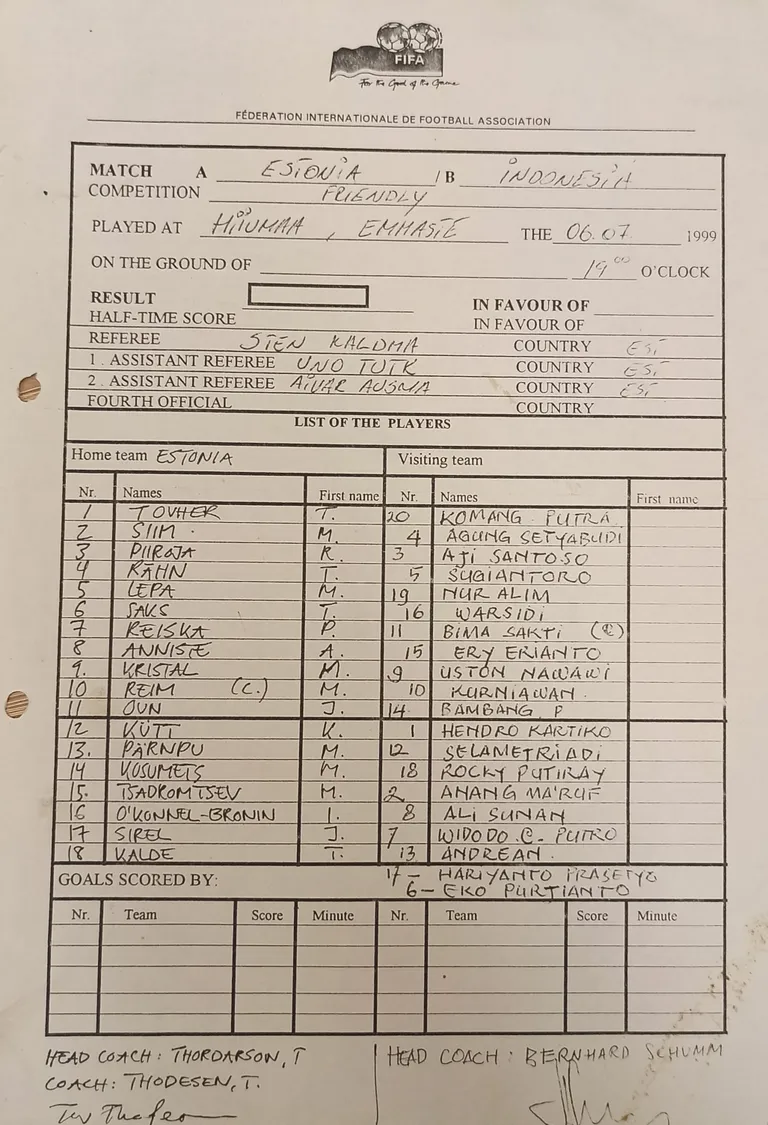 FIFA
For the Good of the Game
FÉDERATION INTERNATIONALE DE FOOTBALL ASSOCIATION
MATCH A ESTONIA / B INDONESIA
COMPETITION FRIENDLY
PLAYED AT HIIUMAA, EMMASTE THE 06.07 1999
ON THE GROUND OF 19 00 O'CLOCK
RESULT IN FAVOUR OF
HALF-TIME SCORE IN FAVOUR OF
REFEREE STEN KALDMA COUNTRY EST
1. ASSISTANT REFEREE UNO TUTK COUNTRY EST
2. ASSISTANT REFEREE AIVAR AUSMA COUNTRY EST
FOURTH OFFICIAL COUNTRY
LIST OF THE PLAYERS
Home team ESTONIA Visiting team
Nr. Names First name Nr. Names First name
1 TOVHER T. 20 KOMANG PUTRA
2 SIIM M. 4 AGUNG SETYABUDI
3 PIIROJA R. 3 AJI SANTOSO
4 RÄHN T. 5 SUGIANTORO
5 LEPA M. 19 NUR ALIM
6 SAKS T. 16 WARSIDI
7 REISKA P. 11 BIMA SAKTI (C)
8 ANNISTE A. 15 ERY ERIANTO
9. KRISTAL M. 9 USTON NAWAWI
10 REIM (C.) M. 10 KURNIAWAN
11 OVN J. 14 BAMBANG P
12 KÜTT K. 1 HENDRO KARTIKO
13. PÄRNPU M. 12 SELAMETRIADI
14 KOSUMETS M. 18 ROCKY PUTIRAY
15. TSADROMTSEV M. 2 ANANG MA'RUF
16 O'KONNEL-BRONIN I. 8 ALI SUNAN
17 SIREL J. 7 WIDODO .C. PUTRO
18 KALDE T. 13 ANDREAN.
17 - HARIYANTO PRASETYO
GOALS SCORED BY: 6 - EKO PURTIANTO
Nr. Team Score Minute Nr. Team Score Minute
HEAD COACH: THORDARSON, T HEAD COACH: BERNHARD SCHUMM
COACH: THODESEN, T.